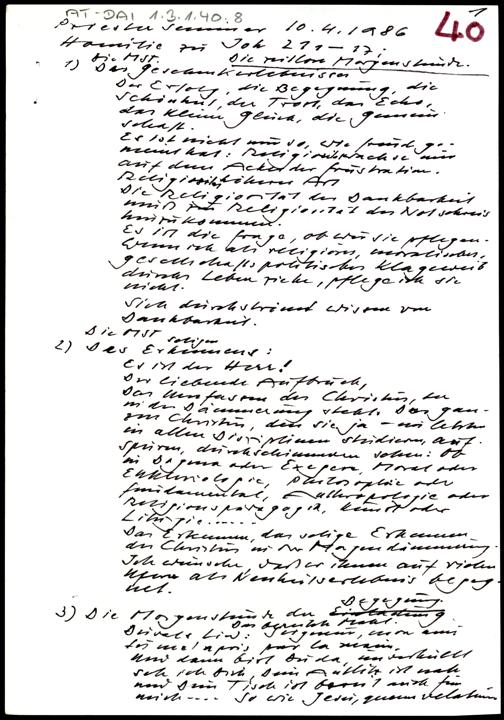 AT-DAI 1.3.1.40.8
1
40
Priester Seminar 10.4.1986
Homilie zu Joh 21 1-17:
Die MSt. Die zeitlose Morgenstunde.
1) Des Geschenkerlebnisses
Der Erfolg, die Begegnung, die
Schönheit, der Trost, das Echo,
das kleine Glück, die Gemein-
schaft.
Es ist nicht nur so, wie Freud ge-
meint hat: Religion wachse nur
auf dem Acker der Frustration.
Religion höherer Art
Die Religiosität der Dankbarkeit
muß zur Religiosität des Notschreis
hinzukommen.
Es ist die Frage, ob wir sie pflegen.
Wenn ich als religiös, moralisches,
gesellschaftspolitisches Klageweib
durchs Leben ziehe, pflege ich sie
nicht.
Sich durchströmt wissen von
Dankbarkeit.
Die MSt
2) Des seligen Erkennens:
Es ist der Herr!
Der liebende Aufbruch,
Das Umfassen des Christus, der
in der Dämmerung steht. Den gan-
zen Christus, den sie ja
in allen Disziplinen studieren, auf-
spüren, durchschimmern sehen: Ob
in Dogma oder Exegese, Moral oder
Ekklesiologie, Philosophie oder
Fundamental, Anthropologie oder
Religionspädagogik, Kunst oder
Liturgie.....
Das Erkennen, das selige Erkennen
des Christus in der Morgendämmerung.
Ich wünsche, daß er ihnen auf vielen
Ufern als Neuheitserlebnis begeg-
net.
3) Die Morgenstunde der Begegnung
Das bereitete Mahl.
Seigneur, mon ami
tu m'as pris par la main,
und dann bist Du da, unverhüllt
seh ich Dich, Dein Antlitz ist nah
und Dein Tisch ist bereit auch für
mich.... So wie Jesu,